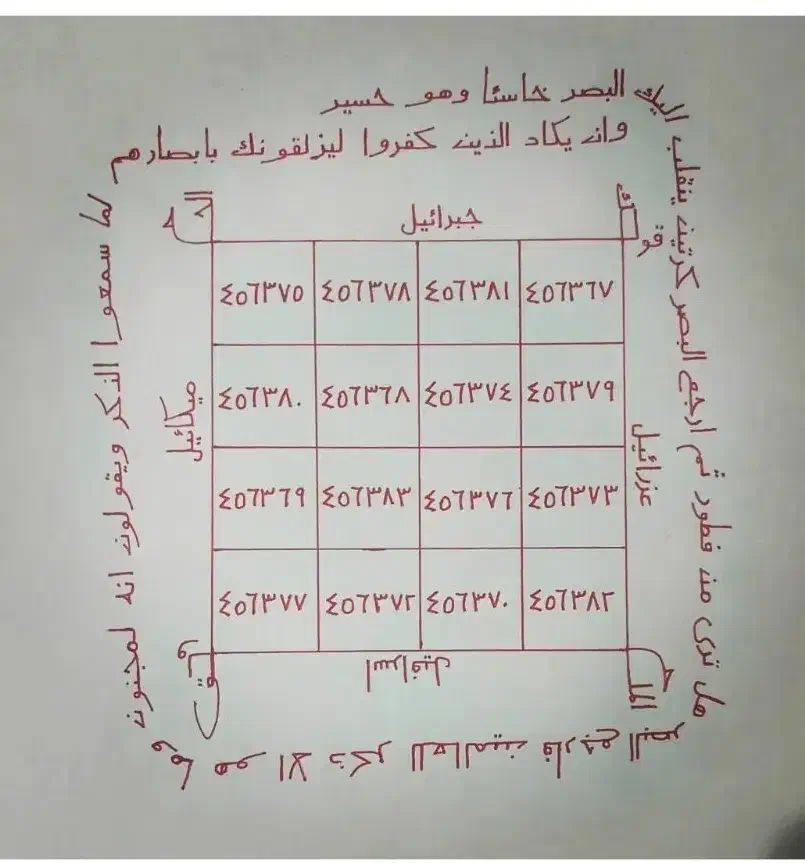 وان يكاد الذين كفروا ليزلقونك بابصارهم
لما سمعوا الذكر ويقولون انه لمجنون
وما هو الا ذكر للعالمين فارجع البصر
هل ترى من فطور ثم ارجع البصر كرتين ينقلب اليك
البصر خاسئا وهو حسير
جبرائيل
عزرائيل
ميكائيل
اسرافيل
٤٥٦٣٦٧ ٤٥٦٣٨١ ٤٥٦٣٧٨ ٤٥٦٣٧٥
٤٥٦٣٧٩ ٤٥٦٣٧٤ ٤٥٦٣٦٨ ٤٥٦٣٨٠
٤٥٦٣٧٣ ٤٥٦٣٧٦ ٤٥٦٣٨٣ ٤٥٦٣٦٩
٤٥٦٣٨٢ ٤٥٦٣٧٠ ٤٥٦٣٧٢ ٤٥٦٣٧٧